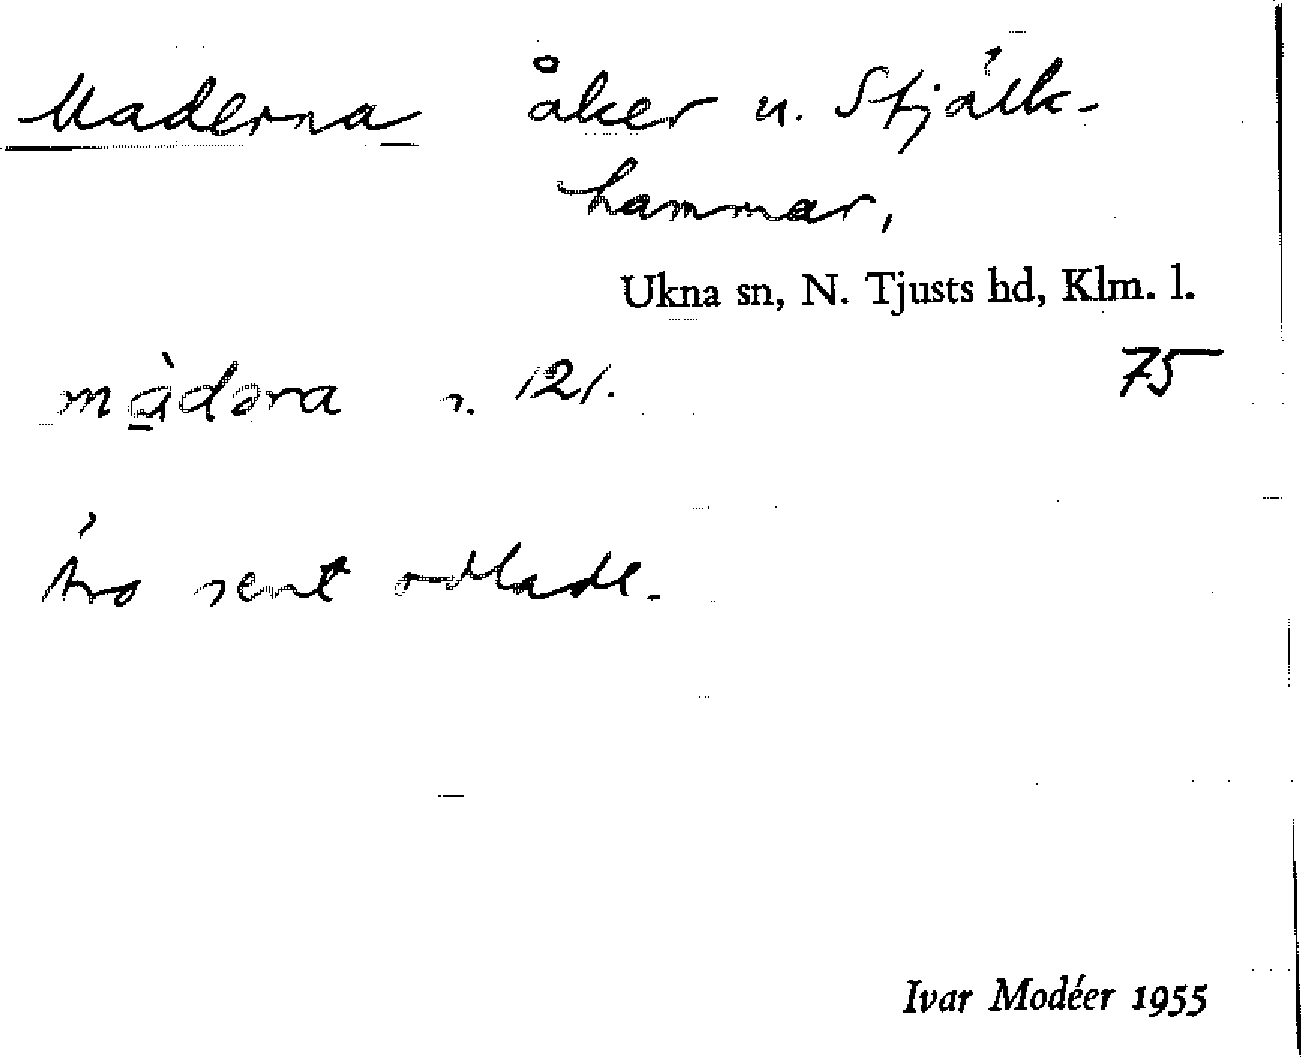 Maderna åker u. Stjälk-
hammar,
Ukna sn, N. Tjusts hd, Klm. l.
75
màdəra s. 121.
Äro sent odlade.
Ivar Modéer 1955